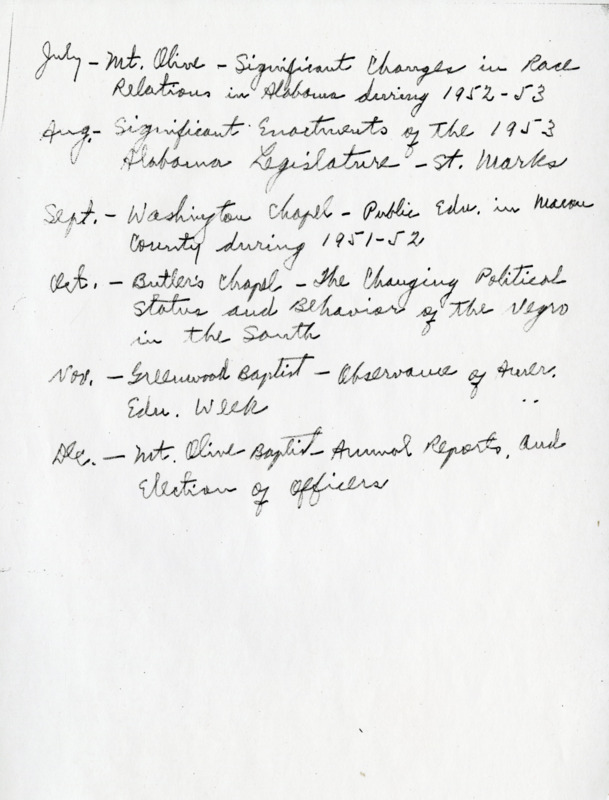 July - Mt. Olive - Significant Changes in Race
Relations in Alabama during 1952-53
Aug. - Significant Enactments of the 1953
Alabama Legislature - St. Marks
Sept. - Washington Chapel - Public Edu. in Macon
County during 1951-52
Oct. - Butler's Chapel - The Changing Political
Status and Behavior of the Negro
in the South
Nov. - Greenwood Baptist - Observance of Amer.
Edu. Week
Dec. - Mt. Olive Baptist - Annual Reports, and
Election of Officers